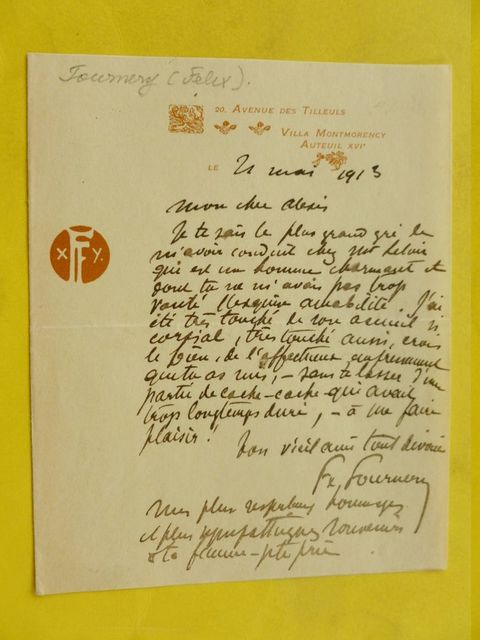 Fournery (Felix).
20. AVENUE DES TILLEULS
VILLA MONTMORENCY
AUTEUIL XVIᵉ
LE 21 mai 1913
X F Y.
Mon cher Alexis
Je te sais le plus grand gré de
m'avoir conduit chez
qui est un homme charmant et
dont tu ne m'avais pas trop
vanté l'exquise amabilité. J'ai
été très touché de son accueil si
cordial, très touché aussi, crois
le bien, de l'affectueux empressement
que tu as mis, – sans te lasser d'une
partie de cache-cache qui avait
trop longtemps duré, – à me faire
plaisir !
ton vieil ami tout dévoué
Fx. Fournery
Mes plus respectueux hommages
et plus sympathiques souvenirs
à ta femme – je te prie